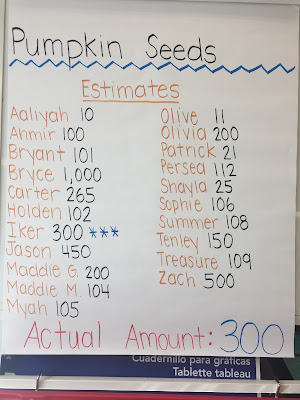 Pumpkin Seeds
Estimates
Aaliyah 10
Ahmir 100
Bryant 101
Bryce 1,000
Carter 265
Holden 102
Iker 300 ***
Jason 450
Maddie G. 200
Maddie M. 104
Myah 105
Olive 11
Olivia 200
Patrick 21
Persea 112
Shayla 25
Sophie 106
Summer 108
Tenley 150
Treasure 109
Zach 500
Actual Amount: 300
Cuadernillo para gráficas
Tablette tableau